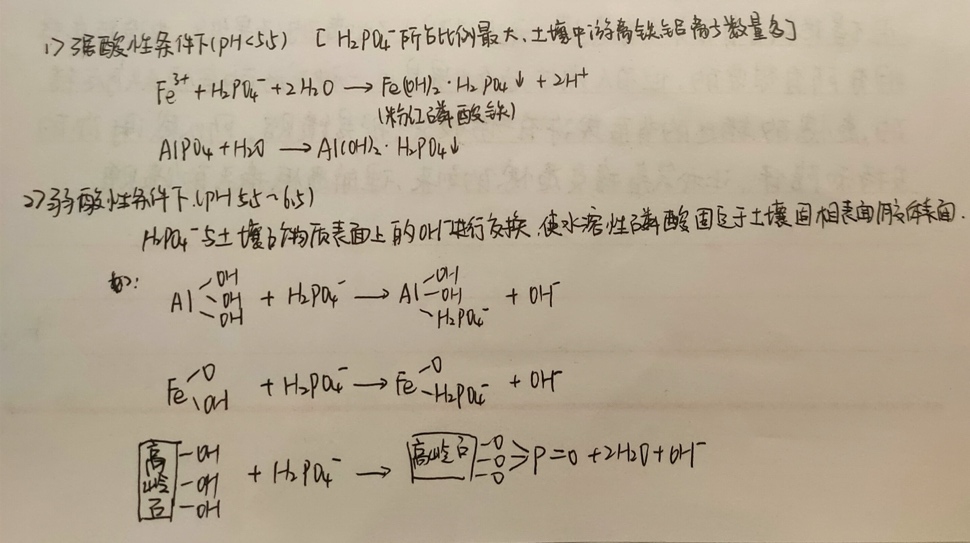 1) 强酸性条件下(PH<5.5) [H₂PO₄⁻所占比例最大、土壤中游离铁铝离子数量多]
Fe³⁺ + H₂PO₄⁻ + 2H₂O → Fe(OH)₂·H₂PO₄↓ + 2H⁺
(粉红磷酸铁)
AlPO₄ + H₂O → Al(OH)₂·H₂PO₄↓
2) 弱酸性条件下.(PH 5.5~6.5)
H₂PO₄⁻与土壤矿物质表面上的OH⁻进行交换,使水溶性磷酸固定于土壤固相表面胶体表面.
如: Al -OH -OH -OH + H₂PO₄⁻ → Al -OH -OH -H₂PO₄⁻ + OH⁻
Fe -O -OH + H₂PO₄⁻ → Fe -O -H₂PO₄⁻ + OH⁻
高岭石 -OH -OH -OH + H₂PO₄⁻ → 高岭石 -O -O -O >P=O + 2H₂O + OH⁻